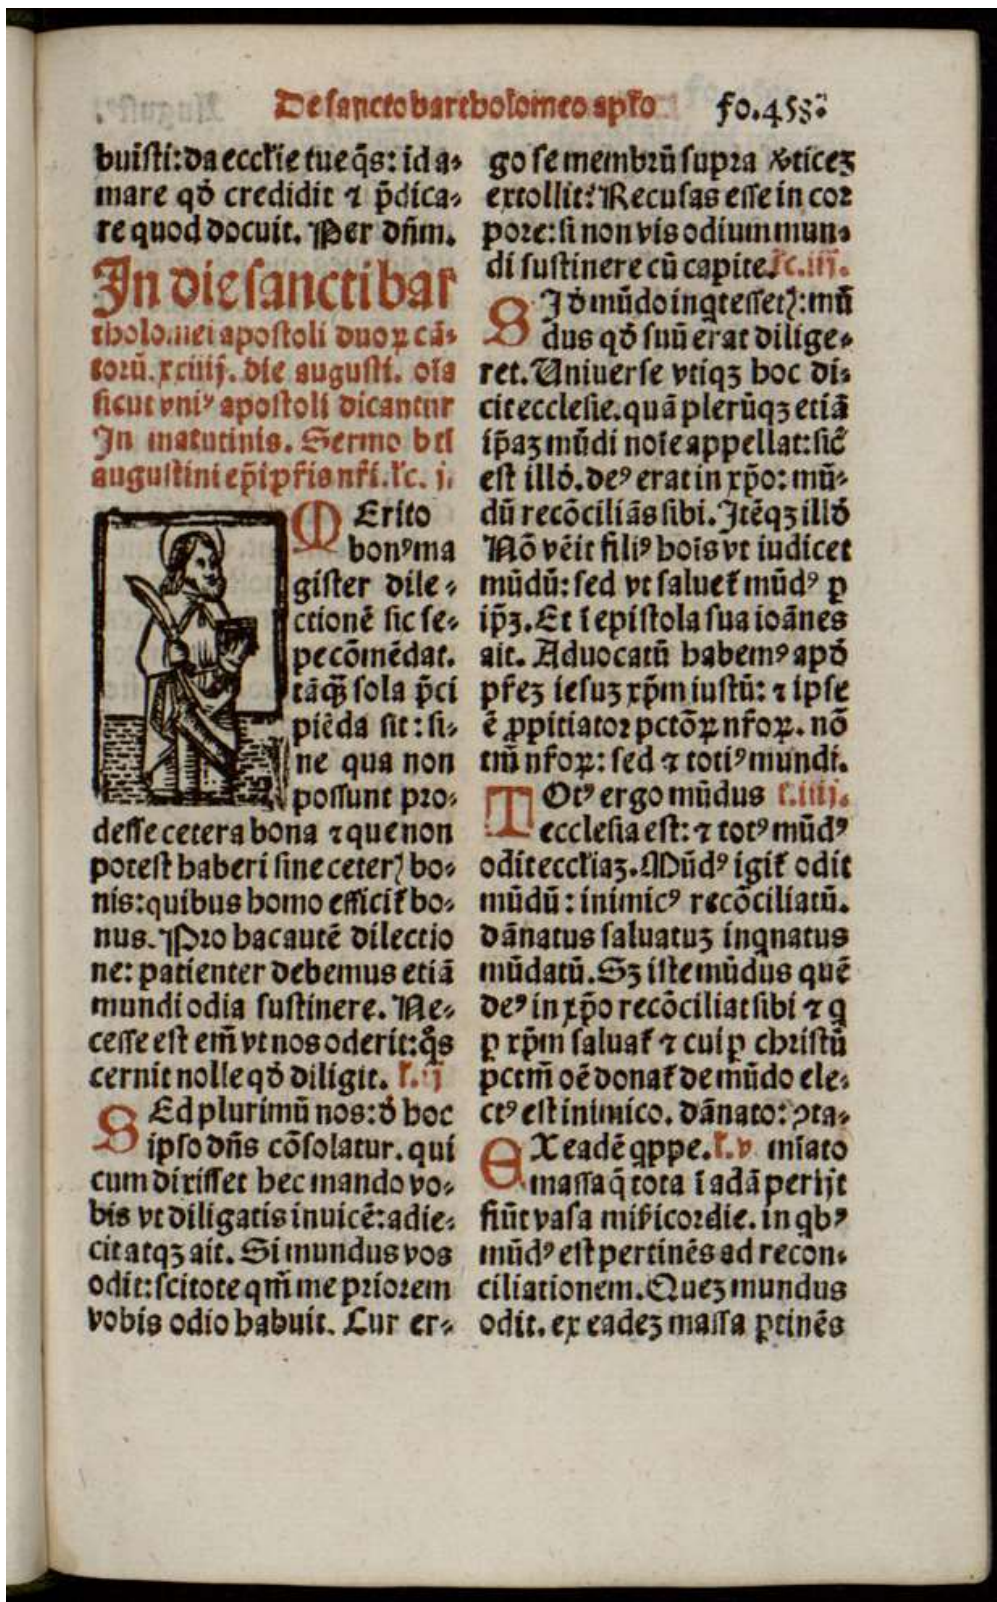 De sancto bartholomeo apl̄o fo.458.
buisti: da eccl̄ie tue q̄s: id a⸗
mare qđ credidit ⁊ p̄dica⸗
re quod docuit. Per dn̄m.
In die sancti bar
tholomei apostoli duoꝝ cā⸗
torū. xxiiij. die augusti. oīa
sicut vniꝰ apostoli dicantur
In matutinis. Sermo bt̄i
augustini ep̄i pr̄is nr̄i. lc̄. j.
MErito
bonꝰ ma
gister dile⸗
ctionē sic se⸗
pe cōmēdat.
tāq̄ꝫ sola p̄ci
piēda sit: si⸗
ne qua non
possunt pro⸗
desse cetera bona ⁊ que non
potest haberi sine ceterꝭ bo⸗
nis: quibus homo efficit̄ bo⸗
nus. Pro hac autē dilectio
ne: patienter debemus etiā
mundi odia sustinere. Ne⸗
cesse est em̄ vt nos oderit: q̄s
cernit nolle qđ diligit. l̄. ij
SEd plurimū nos: đ hoc
ipso dn̄s cōsolatur. qui
cum dixisset hec mando vo⸗
bis vt diligatis inuicē: adie⸗
cit atqꝫ ait. Si mundus vos
odit: scitote qm̄ me priorem
vobis odio habuit. Cur er⸗
go se membrū supra v̓ticeꝫ
extollit? Recusas esse in cor
pore: si non vis odium mun⸗
di sustinere cū capite. lc̄. iij.
SI đ mūdo inq̇t essetꝭ: mū
dus qđ suū erat dilige⸗
ret. Uniuerse vtiqꝫ hoc di⸗
cit ecclesie. quā plerūqꝫ etiā
ip̄aꝫ mūdi noīe appellat: sic̄
est illđ. deꝰ erat in xp̄o: mū⸗
dū recōciliās sibi. Itēqꝫ illđ
Nō vēit filiꝰ hoīs vt iudicet
mūdū: sed vt saluet̄ mūdꝰ ꝑ
ip̄ꝫ. Et ī epistola sua ioānes
ait. Aduocatū habemꝰ apđ
pr̄eꝫ iesuꝫ xp̄m iustū: ⁊ ipse
ē ꝓpitiator pctōꝝ nr̄oꝝ. nō
tm̄ nr̄oꝝ: sed ⁊ totiꝰ mundi.
TOtꝰ ergo mūdus l̄. iiij.
ecclesia est: ⁊ totꝰ mūdꝰ
odit eccl̄iaꝫ. Mūdꝰ igit̄ odit
mūdū: inimicꝰ recōciliatū.
dānatus saluatuꝫ inq̇natus
mūdatū. Sꝫ iste mūdus quē
deꝰ in xp̄o recōciliat sibi ⁊ q̇
ꝑ xp̄m saluat̄ ⁊ cui ꝑ christū
pctm̄ oē donat̄ de mūdo ele⸗
ctꝰ est inimico. dānato: ꝯta⸗
EX eadē q̇ppe. l̄. v mīato
massa q̄ tota ī adā perijt
fiūt vasa mīẜicordie. in q̇bꝰ
mūdꝰ est pertinēs ad recon⸗
ciliationem. Queꝫ mundus
odit. ex eadeꝫ massa ꝑtinēs